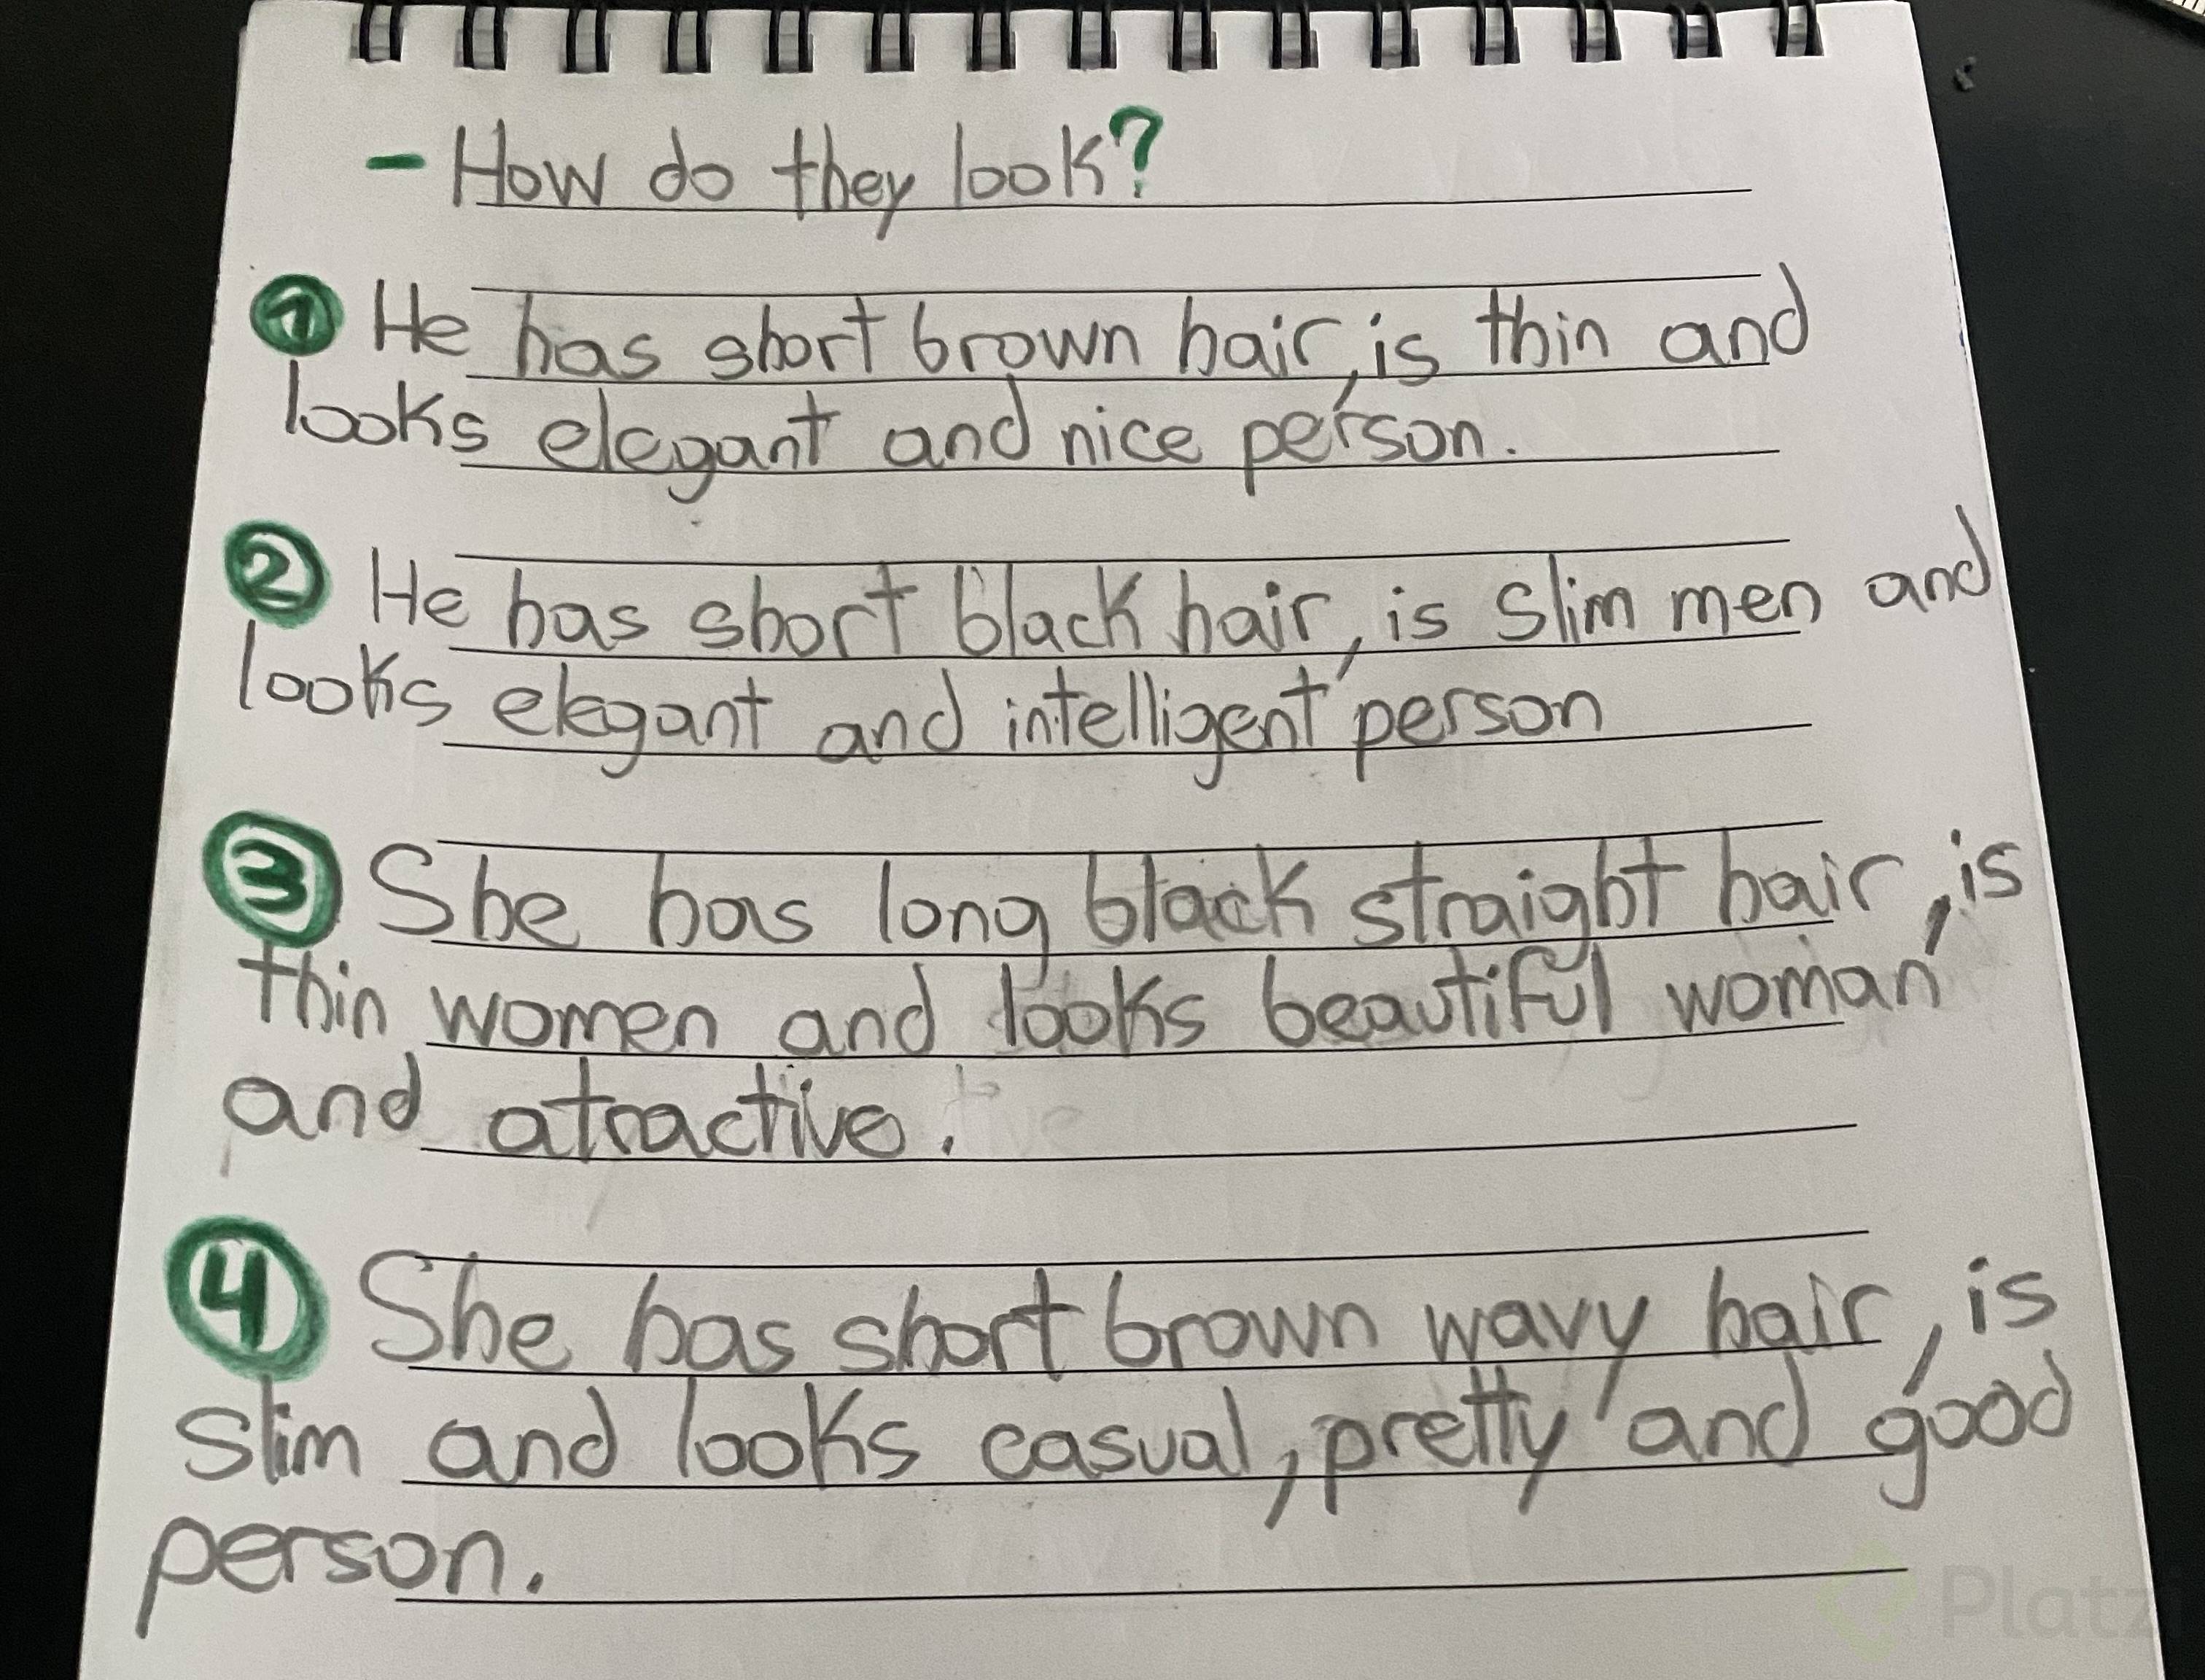 - How do they look?
1 He has short brown hair, is thin and
looks elegant and nice person.
2 He has short black hair, is slim men and
looks elegant and intelligent person
3 She has long black straight hair, is
thin women and looks beautiful woman
and atractive.
4 She has short brown wavy hair, is
slim and looks casual, pretty and good
person.
Platzi